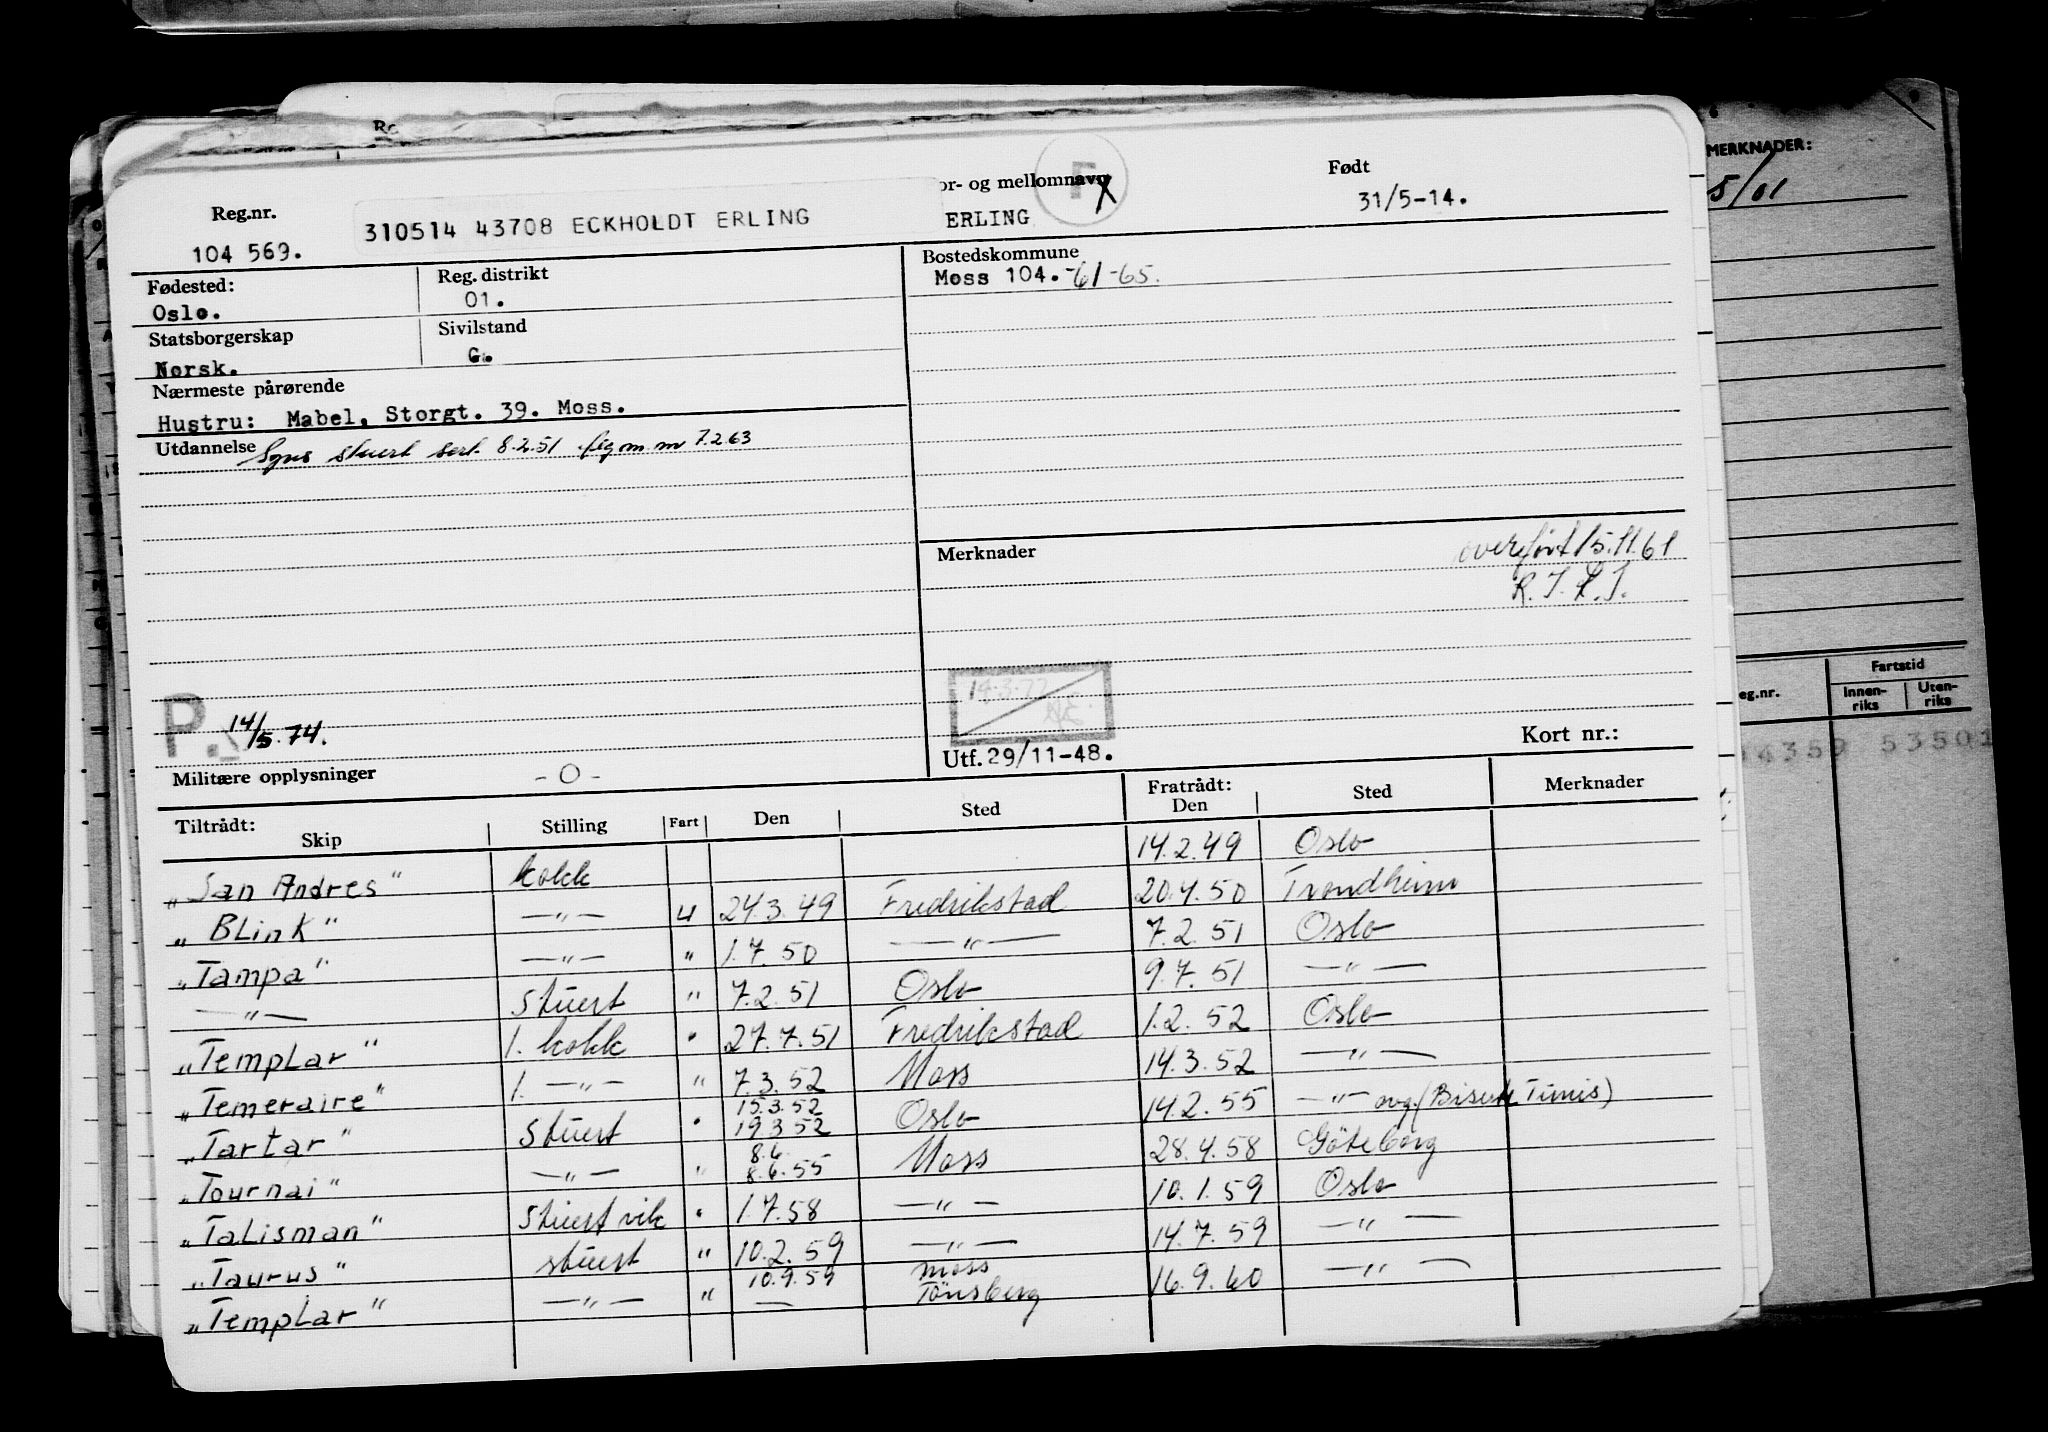 MERKNADER:
5/01
Reg.nr.
or- og mellomnavn
F
X
Født
104 569.
310514 43708 ECKHOLDT ERLING
ERLING
31/5-14.
Fødested:
Reg. distrikt
Bostedskommune
Oslo.
01.
Moss 104.-61-65.
Statsborgerskap
Sivilstand
Norsk.
G.
Nærmeste pårørende
Hustru: Mabel, Storgt. 39. Moss.
Utdannelse stuert sert. 8.2.51 m.m 7.2.63
Merknader
overført 15.11.61
P. 14/5.74.
14.3.77
Utf. 29/11-48.
Kort nr.:
Militære opplysninger -0-
Tiltrådt: Skip Stilling Fart Den Sted Fratrådt: Den Sted Merknader
"San Andres" kokk 14.2.49 Oslo
"Blink" —"— U 24.3.49 Fredrikstad 20.4.50 Trondheim
"Tampa" —"— " 1.7.50 —"— 7.2.51 Oslo
—"— Stuert " 7.2.51 Oslo 9.7.51 —"—
"Templar" 1. kokk " 27.7.51 Fredrikstad 1.2.52 Oslo
"Temeraire" 1. —"— " 7.3.52 Moss 14.3.52 —"—
"Tartar" Stuert " 15.3.52 19.3.52 Oslo 14.2.55 —"— avg. Tunis)
"Tournai" —"— " 8.6. 8.6.55 Moss 28.4.58 Göteborg
"Talisman" Stuert vik " 1.7.58 —"— 10.1.59 Oslo
"Taurus" stuert " 10.2.59 —"— 14.7.59 —"—
"Templar" —"— " 10.9.59 — Moss Tönsberg 16.9.60 —"—
eg.nr.
Fartstid
Innen-riks
Uten-riks
4359 53501